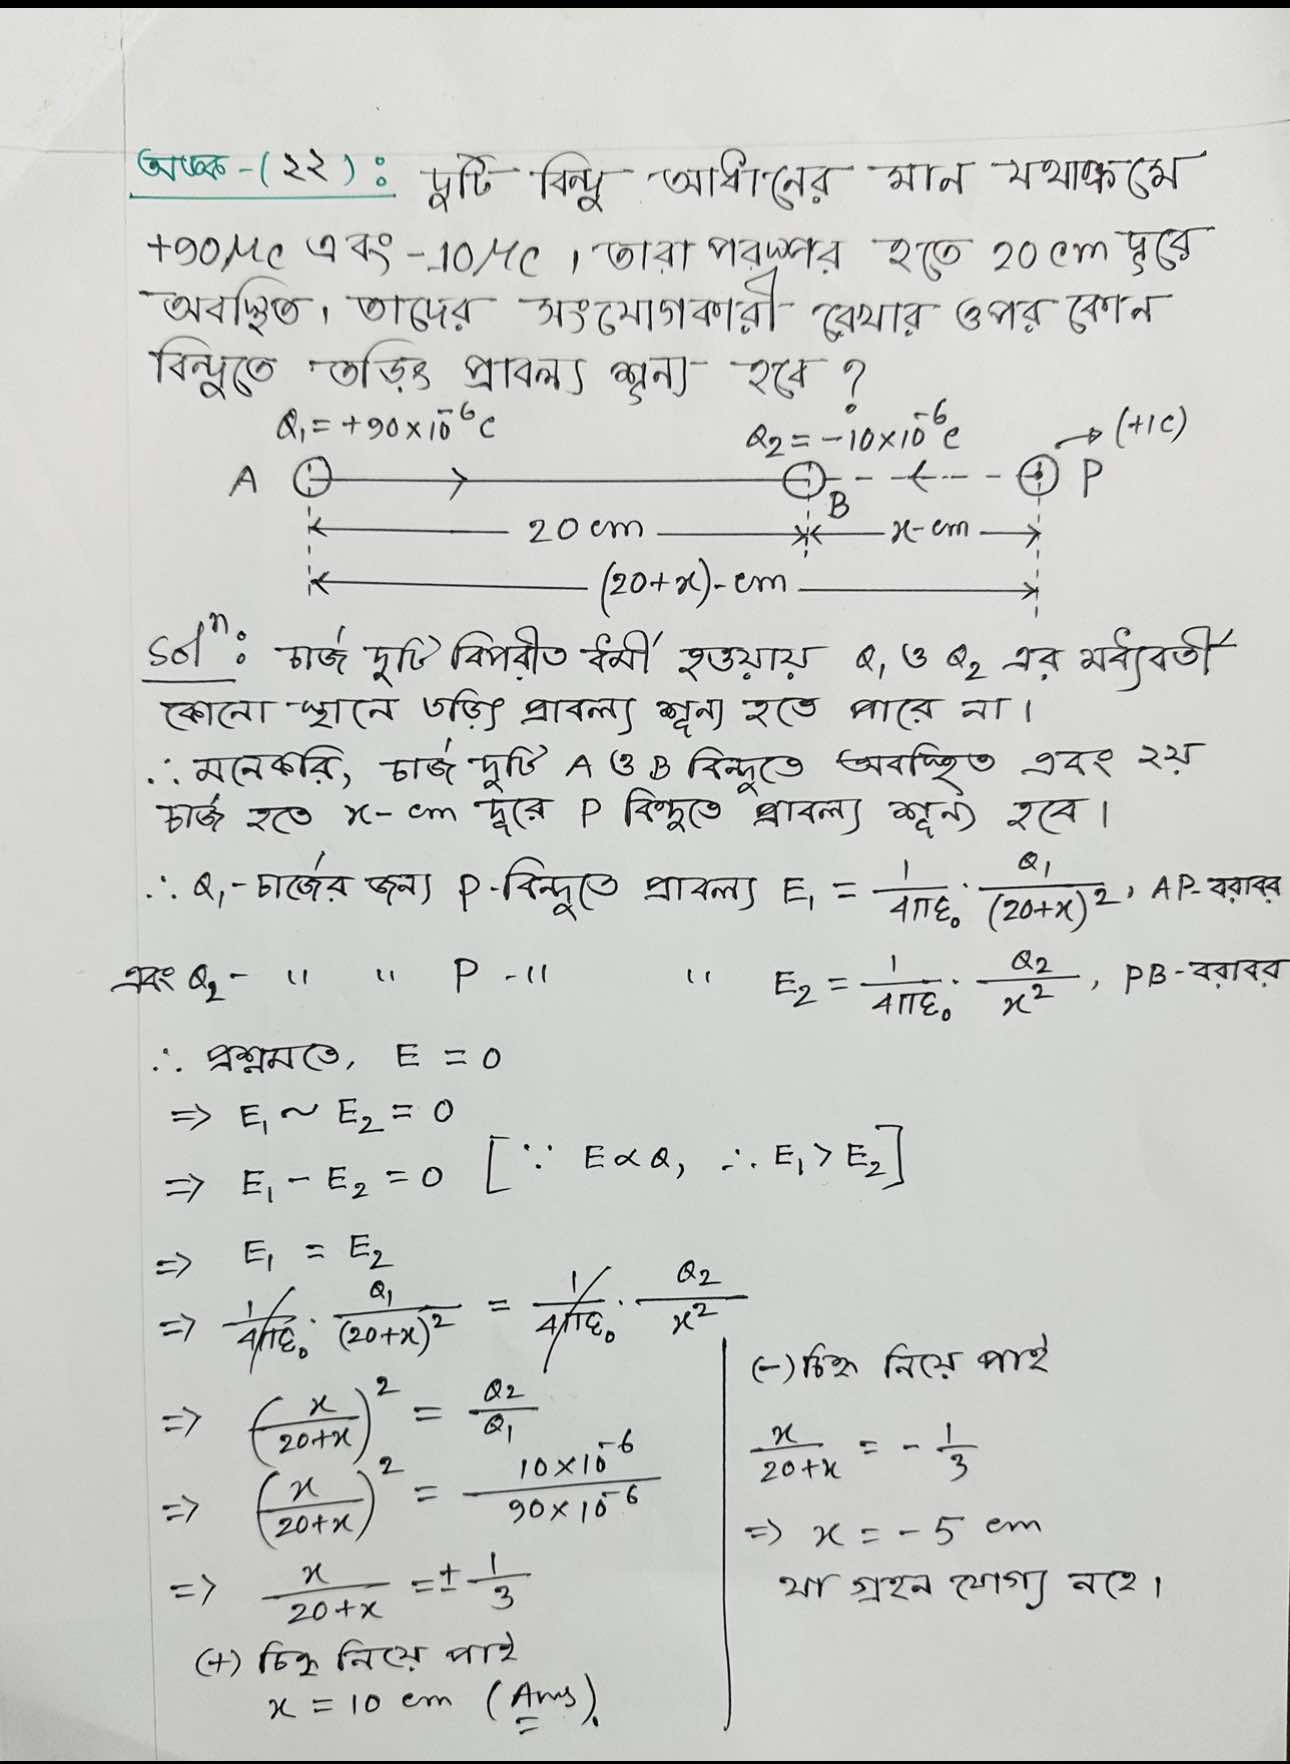 অঙ্ক-(২২): দুটি বিন্দু আধানের মান যথাক্রমে
+90μC এবং -10μC, তারা পরস্পর হতে 20 cm দূরে
অবস্থিত। তাদের সংযোগকারী রেখার ওপর কোন
বিন্দুতে তড়িৎ প্রাবল্য শূন্য হবে?
Q₁ = +90×10⁻⁶C Q₂ = -10×10⁻⁶C (+1C)
A B P
20 cm x-cm
(20+x)-cm
Solⁿ: চার্জ দুটি বিপরীত ধর্মী হওয়ায় Q₁ ও Q₂ এর মধ্যবর্তী
কোনো স্থানে তড়িৎ প্রাবল্য শূন্য হতে পারে না।
∴ মনেকরি, চার্জ দুটি A ও B বিন্দুতে অবস্থিত এবং ২য়
চার্জ হতে x-cm দূরে P বিন্দুতে প্রাবল্য শূন্য হবে।
∴ Q₁-চার্জের জন্য P-বিন্দুতে প্রাবল্য E₁ = 1/4πε₀ · Q₁/(20+x)², AP-বরাবর
এবং Q₂ - " " P -" " E₂ = 1/4πε₀ · Q₂/x², PB-বরাবর
∴ প্রশ্নমতে, E = 0
⇒ E₁ ~ E₂ = 0
⇒ E₁ - E₂ = 0 [∵ E∝Q, ∴ E₁ > E₂]
⇒ E₁ = E₂
⇒ 1/4πε₀ · Q₁/(20+x)² = 1/4πε₀ · Q₂/x²
⇒ (x/20+x)² = Q₂/Q₁
⇒ (x/20+x)² = 10×10⁻⁶/90×10⁻⁶
⇒ x/20+x = ± 1/3
(+) চিহ্ন নিয়ে পাই
x = 10 cm (Ans).
(-) চিহ্ন নিয়ে পাই
x/20+x = - 1/3
⇒ x = - 5 cm
যা গ্রহন যোগ্য নহে।